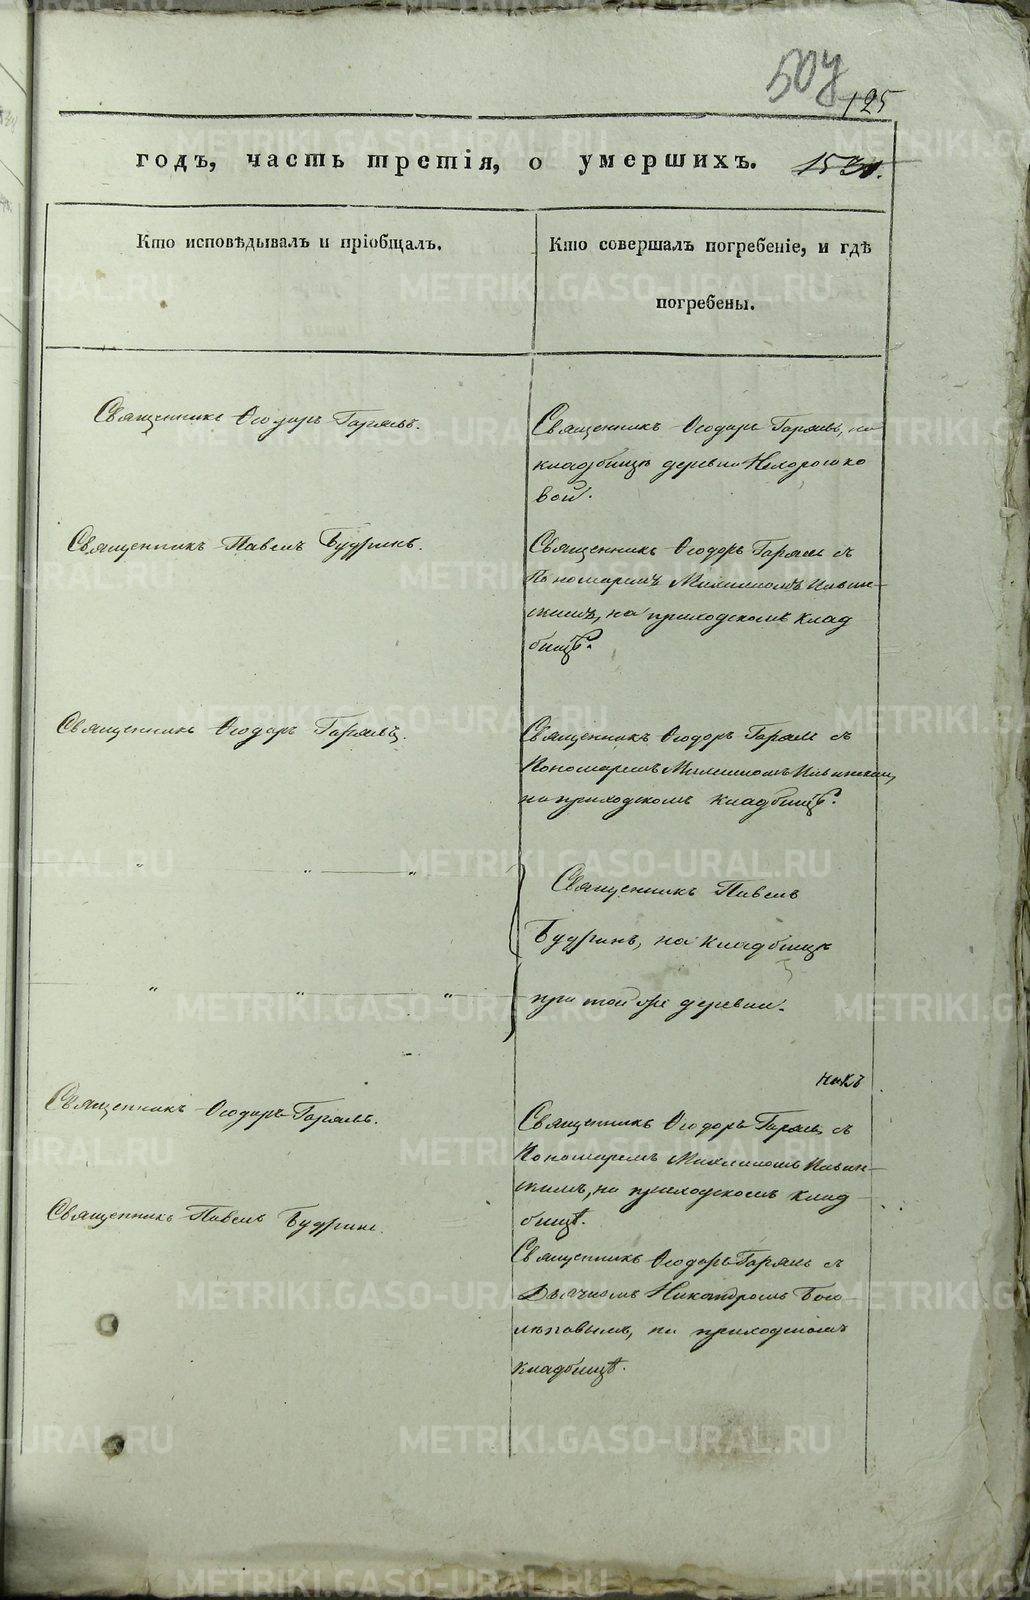 125
годъ, часть третія, о умершихъ.
Кто исповѣдывалъ и пріобщалъ.
Кто совершалъ погребеніе, и гдѣ
погребены.
Священникъ Ѳеодоръ
Священникъ Ѳеодоръ
кладбищѣ деревни
вой.
Священникъ Павелъ Будринъ.
Священникъ Ѳеодоръ съ
Пономаремъ Михаиломъ
на приходскомъ клад
бищѣ.
Священникъ Ѳеодоръ
Священникъ Ѳеодоръ съ
Пономаремъ Михаиломъ
на приходскомъ кладбищѣ.
Священникъ Павелъ
Будринъ, на кладбищѣ
при той же деревни.
Священникъ Ѳеодоръ
Священникъ Ѳеодоръ съ
Пономаремъ Михаиломъ
на приходскомъ клад
бищѣ.
Священникъ Павелъ Будринъ.
Священникъ Ѳеодоръ съ
Дьячкомъ Никандромъ Бого
лѣповымъ, на приходскомъ
кладбищѣ.
METRIKI.GASO-URAL.RU